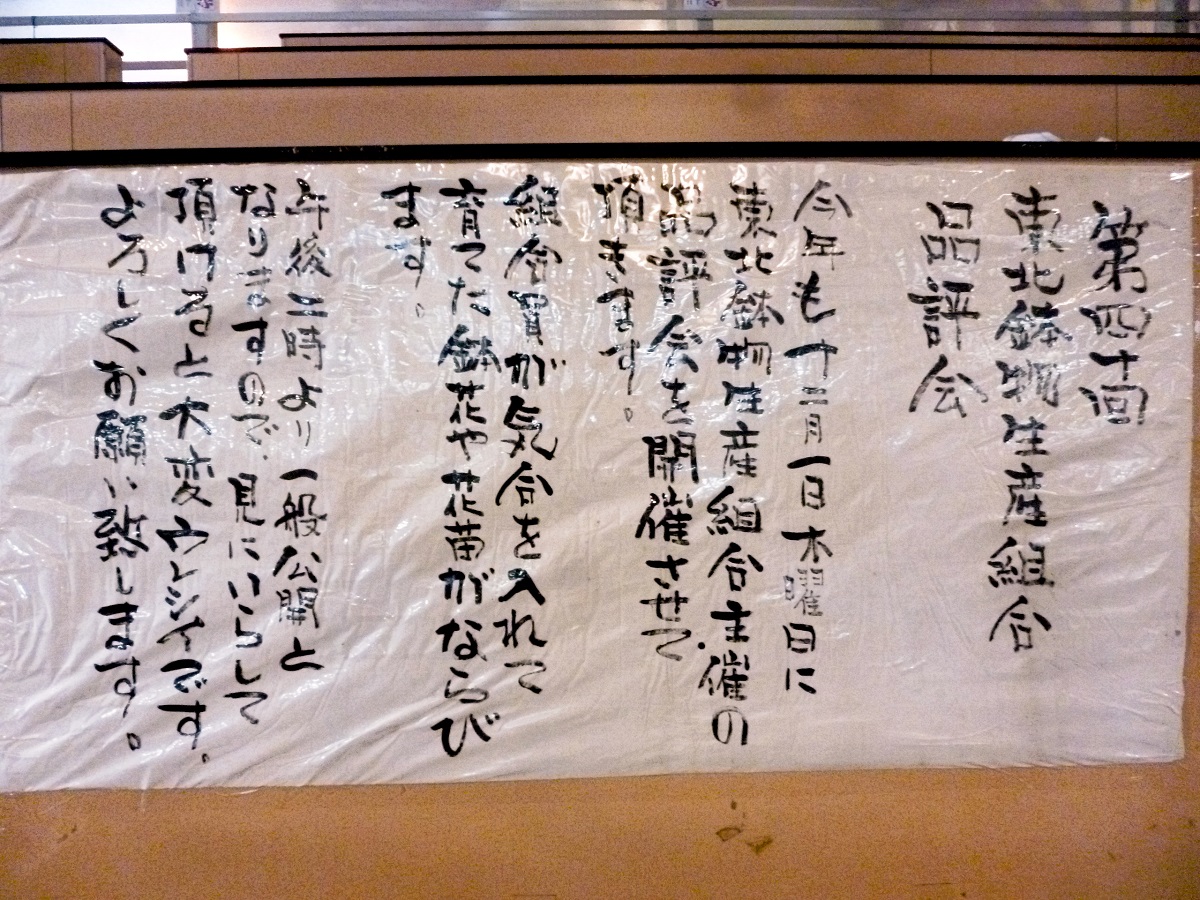 第四十回
東北鉢物生産組合
品評会
今年も十二月一日木曜日に
東北鉢物生産組合主催の
品評会を開催させて
頂きます。
組合員が気合を入れて
育てた鉢花や花苗がならび
ます。
午後二時より一般公開と
なりますので、見にいらして
頂けると大変ウレシイです。
よろしくお願い致します。